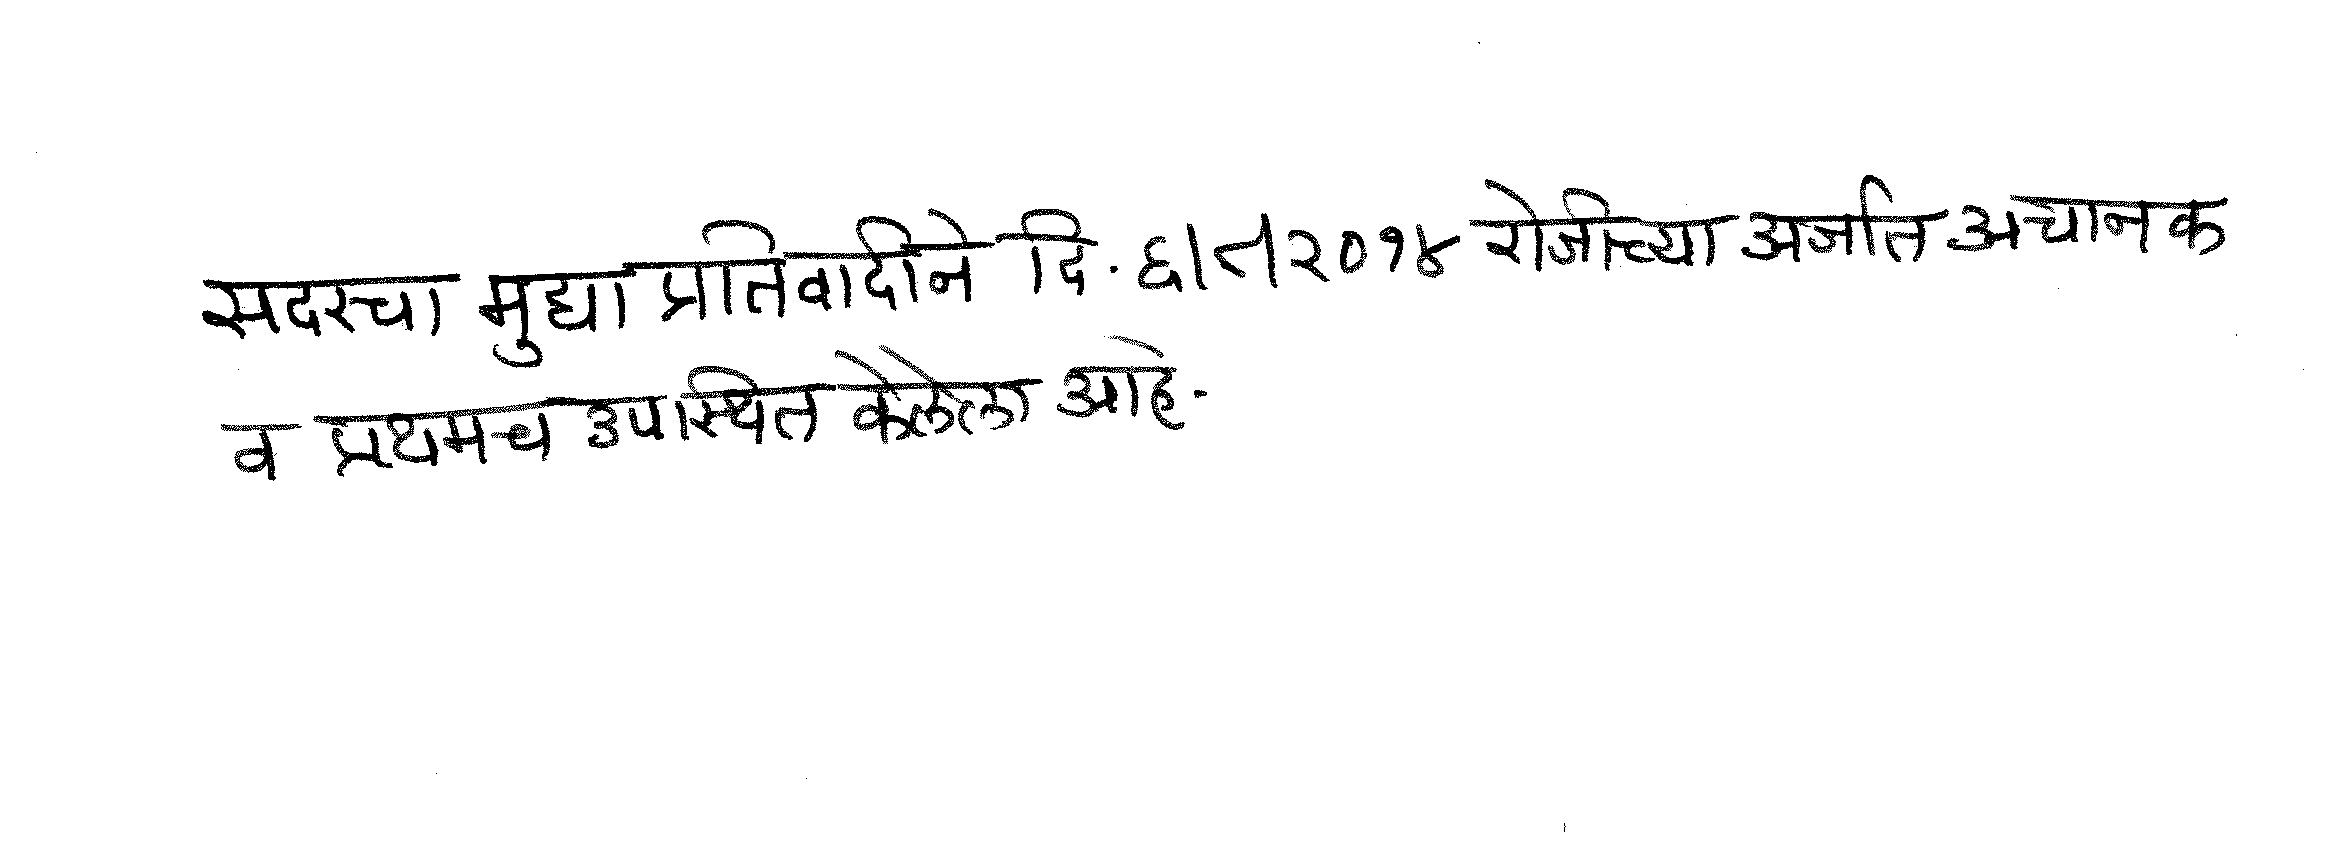 सदरचा मुद्या प्रतिवादीने दि. ६/८/२०१४ रोजीच्या अर्जात अचानक
व प्रथमच उपस्थित केलेला आहे.